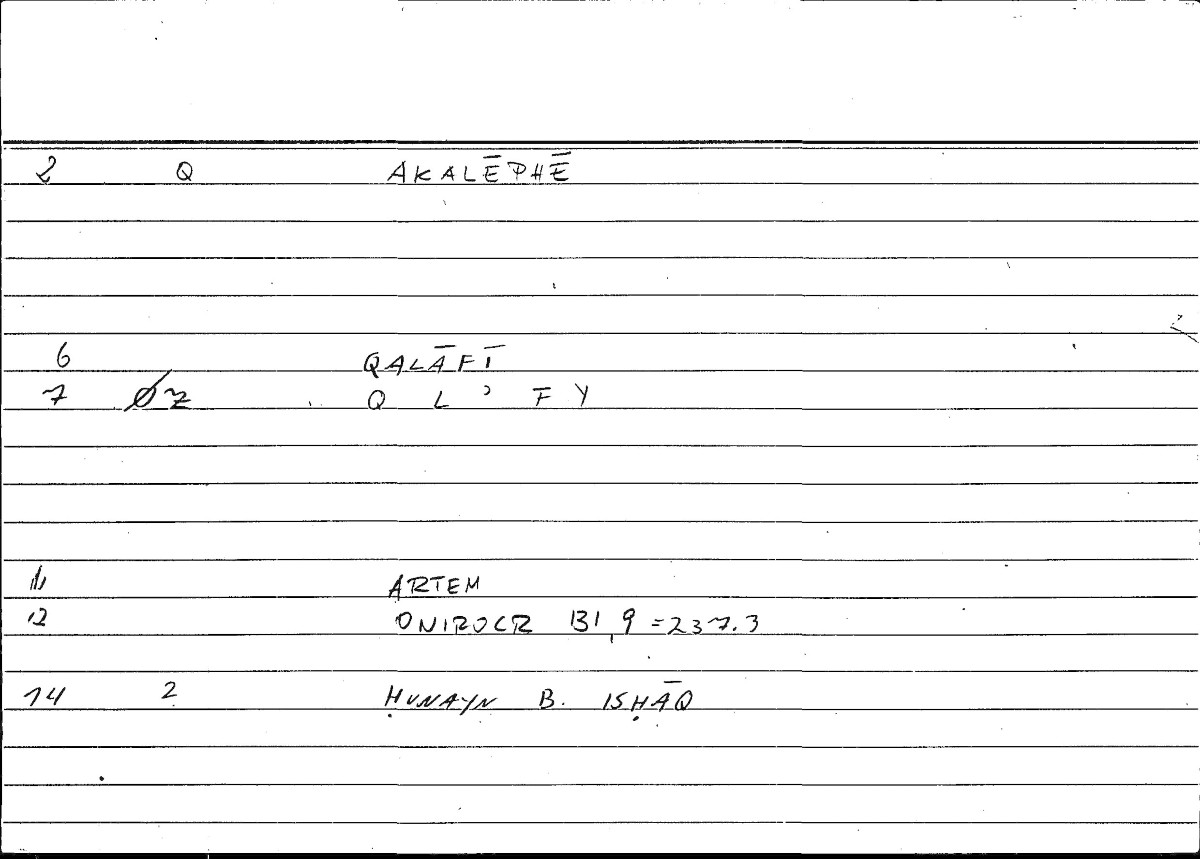 2 Q AKALĒPHĒ
6 QALĀFĪ
7 ØZ Q L ʾ F Y
11 ARTEM
12 ONIROCR 131,9=237.3
14 2 ḤUNAYN B. ISḤĀQ